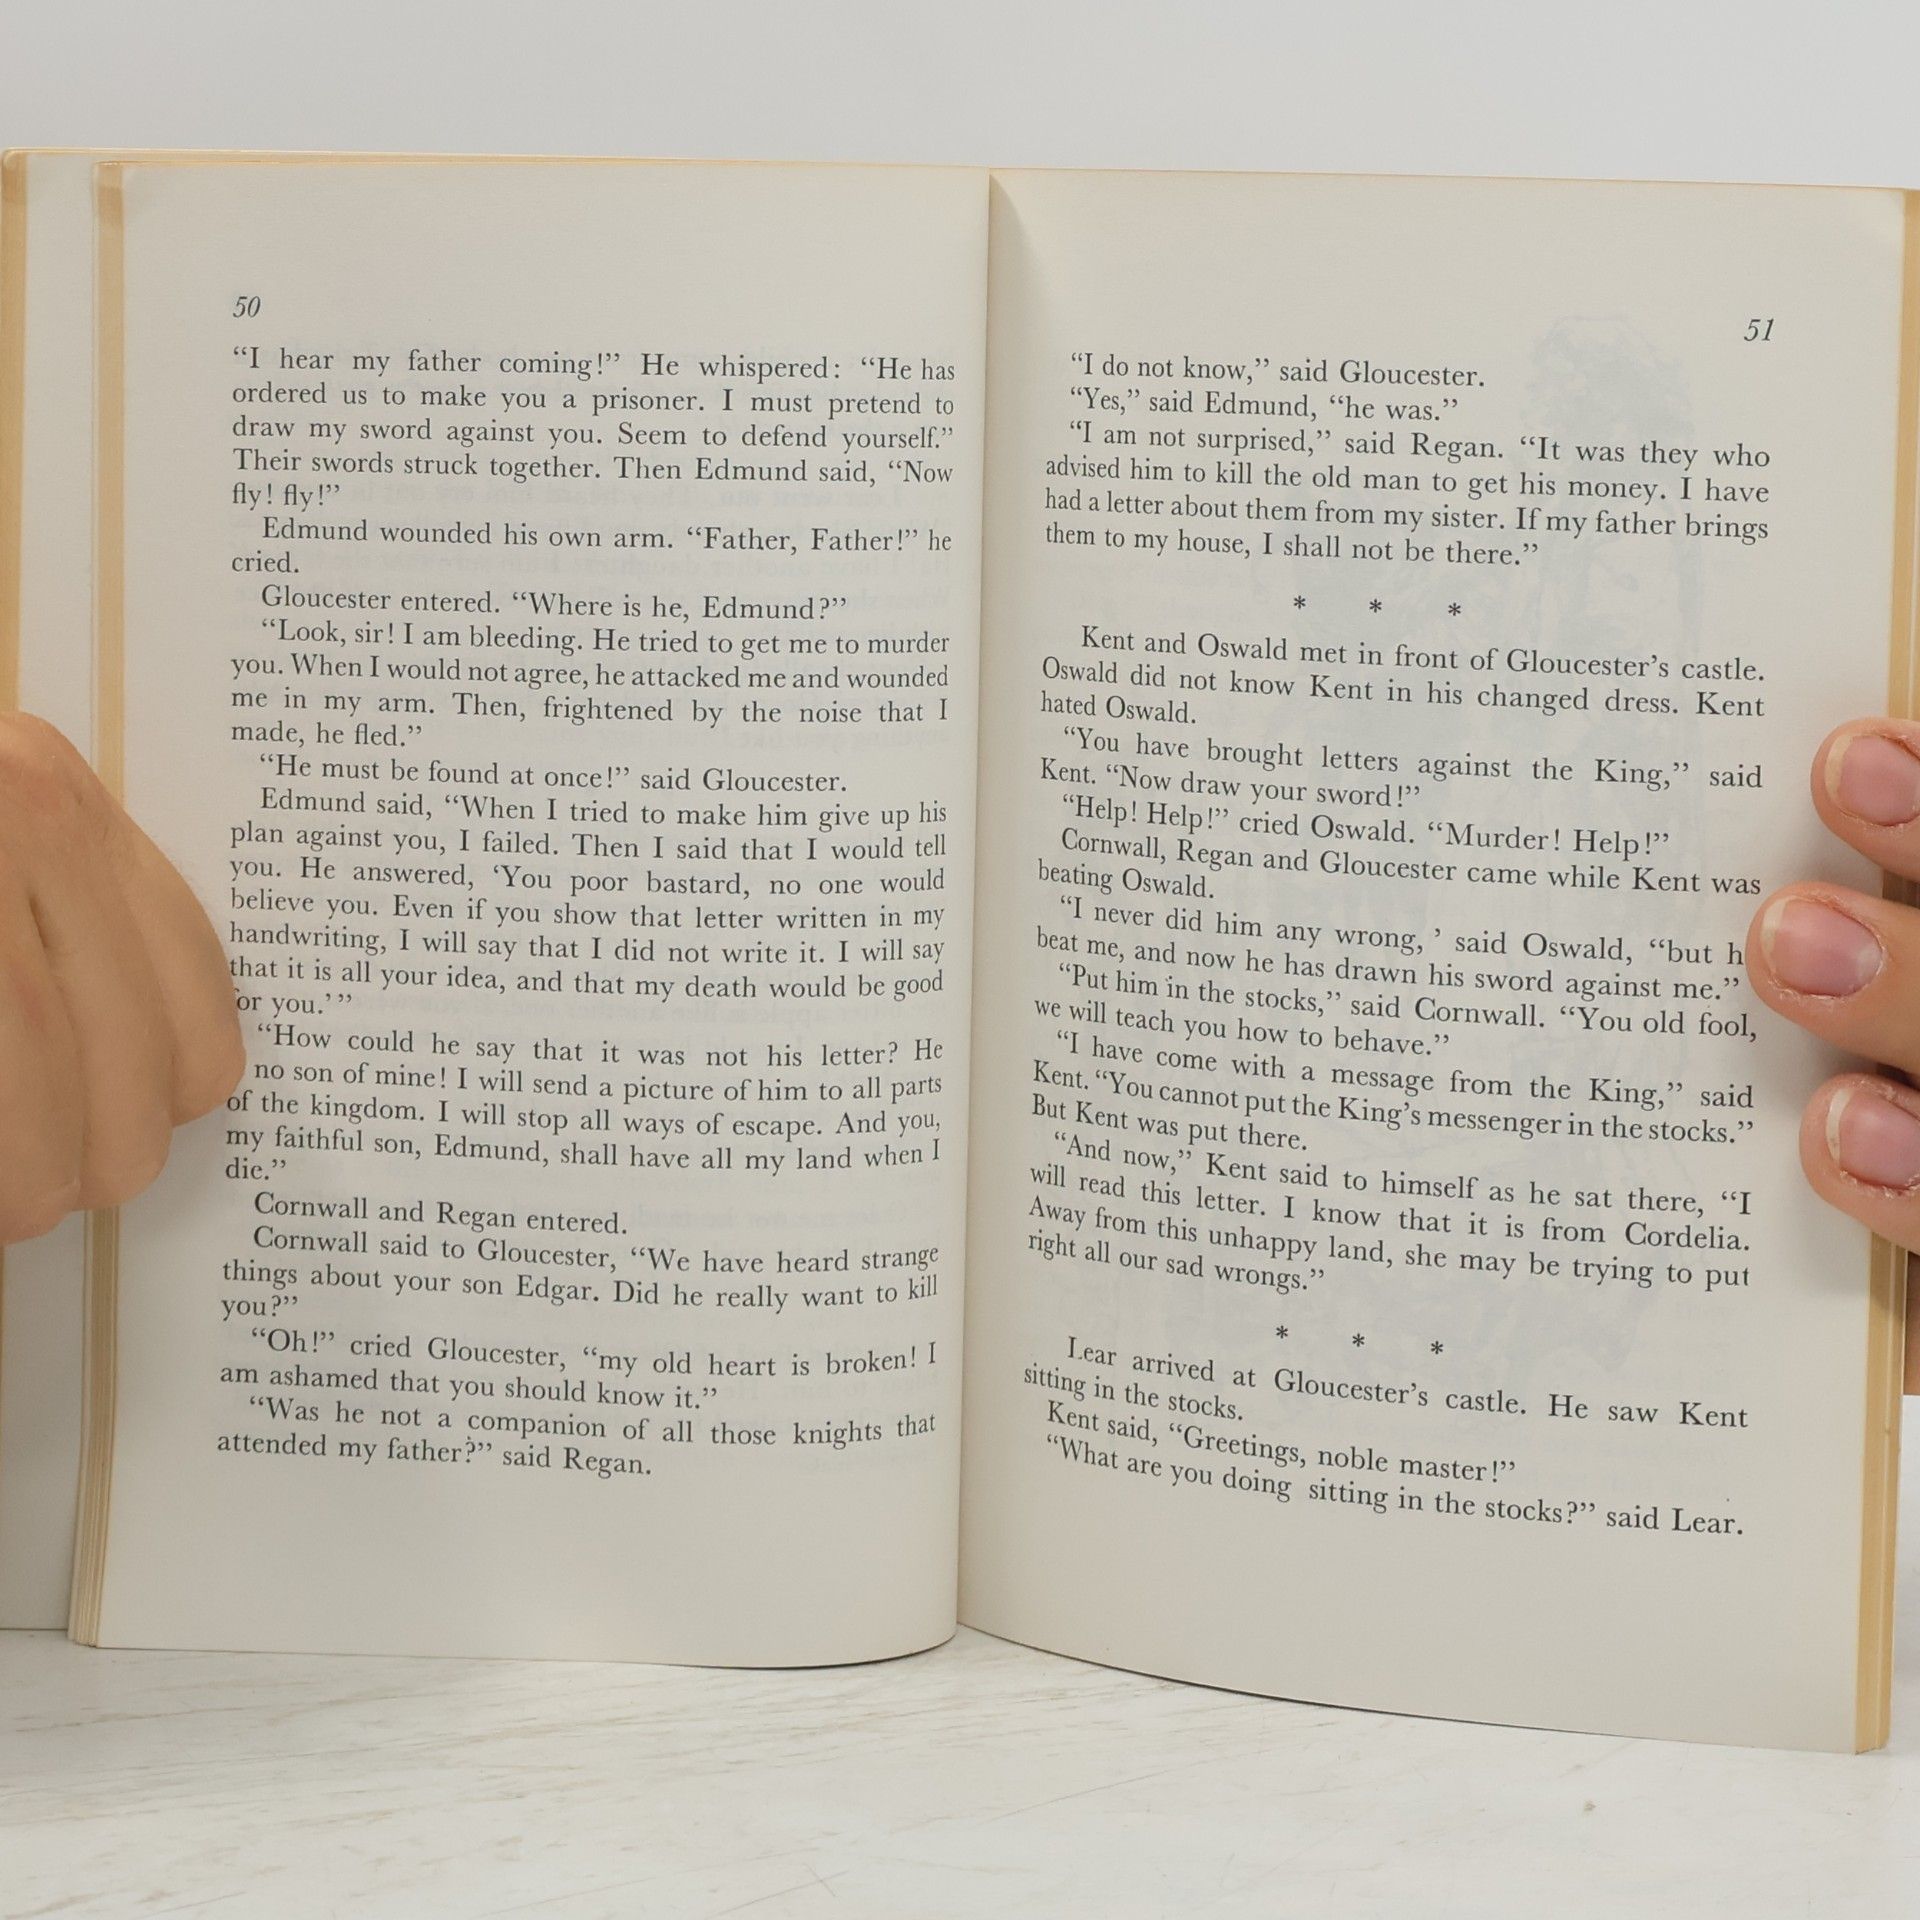 50
“I hear my father coming!” He whispered: “He has
ordered us to make you a prisoner. I must pretend to
draw my sword against you. Seem to defend yourself.”
Their swords struck together. Then Edmund said, “Now
fly! fly!”
Edmund wounded his own arm. “Father, Father!” he
cried.
Gloucester entered. “Where is he, Edmund?”
“Look, sir! I am bleeding. He tried to get me to murder
you. When I would not agree, he attacked me and wounded
me in my arm. Then, frightened by the noise that I
made, he fled.”
“He must be found at once!” said Gloucester.
Edmund said, “When I tried to make him give up his
plan against you, I failed. Then I said that I would tell
you. He answered, ‘You poor bastard, no one would
believe you. Even if you show that letter written in my
handwriting, I will say that I did not write it. I will say
that it is all your idea, and that my death would be good
or you.’ ”
“How could he say that it was not his letter? He
no son of mine! I will send a picture of him to all parts
of the kingdom. I will stop all ways of escape. And you,
my faithful son, Edmund, shall have all my land when I
die.”
Cornwall and Regan entered.
Cornwall said to Gloucester, “We have heard strange
things about your son Edgar. Did he really want to kill
you?”
“Oh!” cried Gloucester, “my old heart is broken! I
am ashamed that you should know it.”
“Was he not a companion of all those knights that
attended my father?” said Regan.
51
“I do not know,” said Gloucester.
“Yes,” said Edmund, “he was.”
“I am not surprised,” said Regan. “It was they who
advised him to kill the old man to get his money. I have
had a letter about them from my sister. If my father brings
them to my house, I shall not be there.”
* * *
Kent and Oswald met in front of Gloucester’s castle.
Oswald did not know Kent in his changed dress. Kent
hated Oswald.
“You have brought letters against the King,” said
Kent. “Now draw your sword!”
“Help! Help!” cried Oswald. “Murder! Help!”
Cornwall, Regan and Gloucester came while Kent was
beating Oswald.
“I never did him any wrong, ’ said Oswald, “but h
beat me, and now he has drawn his sword against me.”
“Put him in the stocks,” said Cornwall. “You old fool,
we will teach you how to behave.”
“I have come with a message from the King,” said
Kent. “You cannot put the King’s messenger in the stocks.”
But Kent was put there.
“And now,” Kent said to himself as he sat there, “I
will read this letter. I know that it is from Cordelia.
Away from this unhappy land, she may be trying to put
right all our sad wrongs.”
* * *
Lear arrived at Gloucester’s castle. He saw Kent
sitting in the stocks.
Kent said, “Greetings, noble master!”
“What are you doing sitting in the stocks?” said Lear.